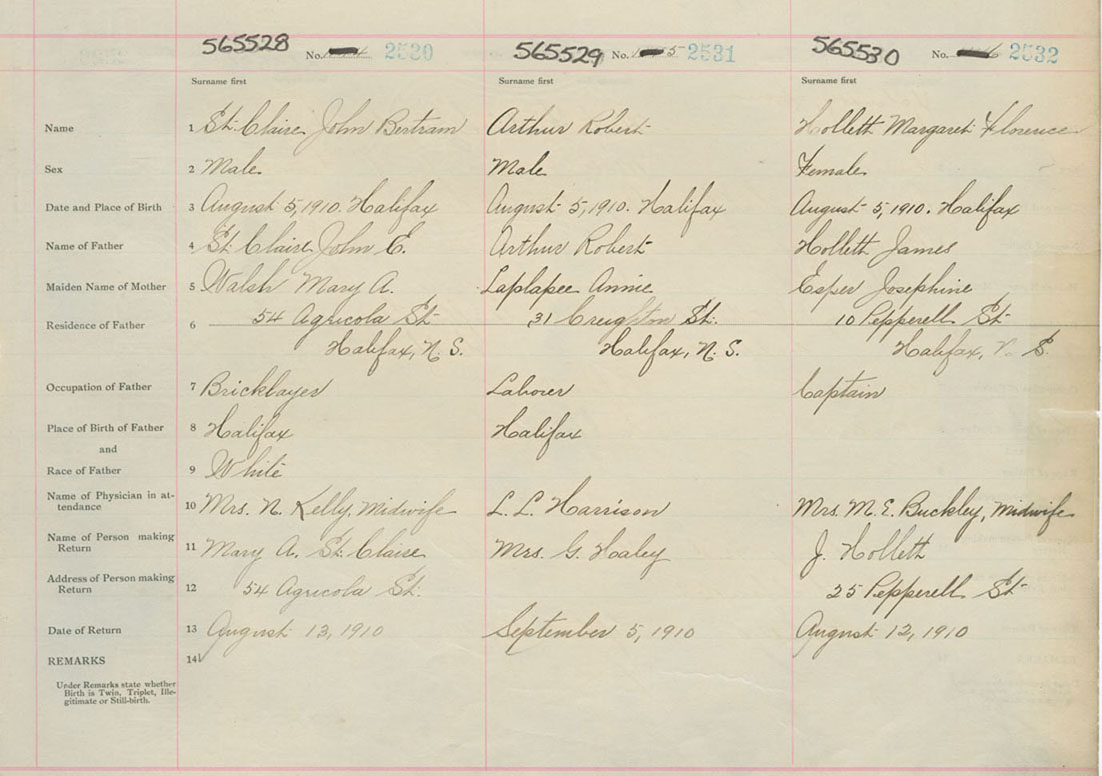 565528 No. 2530 565529 No. 5 2531 565530 No. 6 2532
Surname first Surname first Surname first
Name 1 St. Claire John Bertram Arthur Robert Hollett Margaret Florence
Sex 2 Male Male Female
Date and Place of Birth 3 August 5, 1910. Halifax August 5, 1910. Halifax August 5, 1910. Halifax
Name of Father 4 St. Claire John E. Arthur Robert Hollett James
Maiden Name of Mother 5 Walsh Mary A. Laplapee Annie Esper Josephine
Residence of Father 6 54 Agricola St. 31 Creighton St. 10 Pepperell St
Halifax, N. S. Halifax, N. S. Halifax, N. S.
Occupation of Father 7 Bricklayer Laborer Captain
Place of Birth of Father 8 Halifax Halifax
and
Race of Father 9 White
Name of Physician in at-
tendance 10 Mrs. N. Kelly, Midwife L. L. Harrison Mrs. M. E. Buckley, Midwife
Name of Person making
Return 11 Mary A. St. Claire Mrs. G. Haley J. Hollett
Address of Person making
Return 12 54 Agricola St. 25 Pepperell St
Date of Return 13 August 13, 1910 September 5, 1910 August 12, 1910
REMARKS 14
Under Remarks state whether
Birth is Twin, Triplet, Ille-
gitimate or Still-birth.